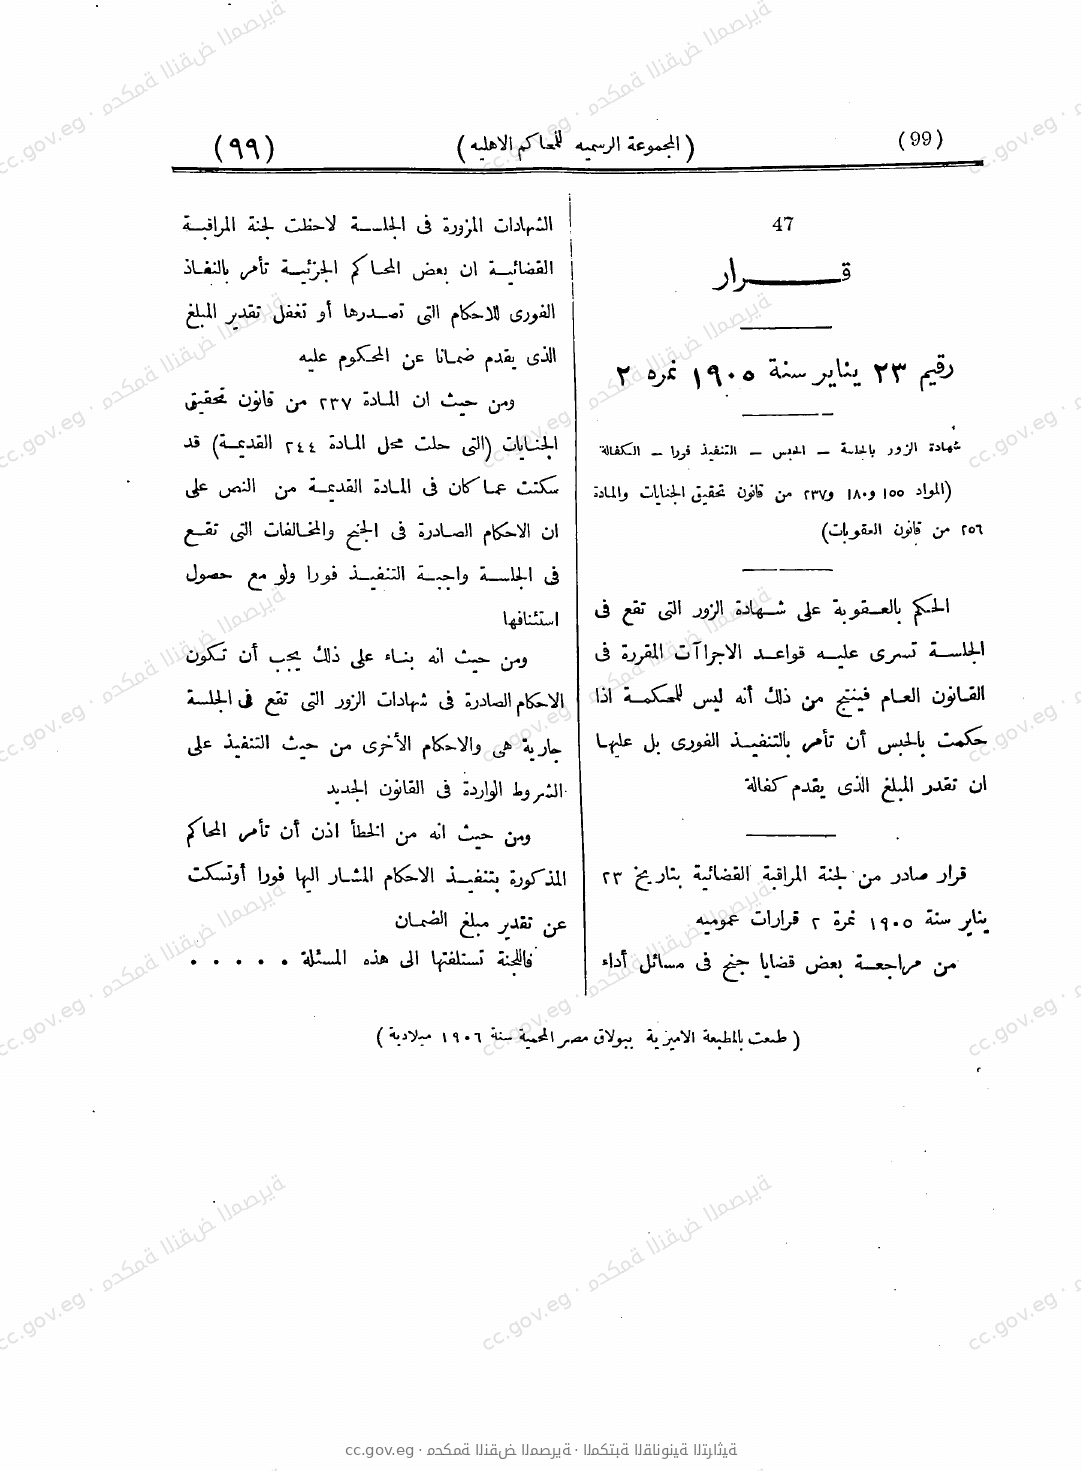 (99)
(المجموعة الرسميه للمحاكم الاهليه)
(٩٩)
47
قرار
رقيم ٢٣ يناير سنة ١٩٠٥ نمره ٢
شهادة الزور بالجلسة – الحبس – التنفيذ فورا – الكفالة
(المواد ١٥٥ و١٨٠ و٢٣٧ من قانون تحقيق الجنايات والمادة
٢٥٦ من قانون العقوبات)
الحكم بالعقوبة على شهادة الزور التى تقع فى
الجلسة تسرى عليه قواعد الاجراآت المقررة فى
القانون العام فينتج من ذلك أنه ليس للمحكمة اذا
حكمت بالحبس أن تأمر بالتنفيذ الفورى بل عليها
ان تقدر المبلغ الذى يقدم كفالة
قرار صادر من لجنة المراقبة القضائية بتاريخ ٢٣
يناير سنة ١٩٠٥ نمرة ٢ قرارات عموميه
من مراجعة بعض قضايا جنح فى مسائل أداء
الشهادات المزورة فى الجلسة لاحظت لجنة المراقبة
القضائية ان بعض المحاكم الجزئية تأمر بالنفاذ
الفورى للاحكام التى تصدرها أو تغفل تقدير المبلغ
الذى يقدم ضمانا عن المحكوم عليه
ومن حيث ان المادة ٢٣٧ من قانون تحقيق
الجنايات (التى حلت محل المادة ٢٤٤ القديمة) قد
سكتت عما كان فى المادة القديمة من النص على
ان الاحكام الصادرة فى الجنح والمخالفات التى تقع
فى الجلسة واجبة التنفيذ فورا ولو مع حصول
استئنافها
ومن حيث انه بناء على ذلك يجب أن تكون
الاحكام الصادرة فى شهادات الزور التى تقع فى الجلسة
جارية هى والاحكام الأخرى من حيث التنفيذ على
الشروط الواردة فى القانون الجديد
ومن حيث انه من الخطأ اذن أن تأمر المحاكم
المذكورة بتنفيذ الاحكام المشار اليها فورا أوتسكت
عن تقدير مبلغ الضمان
فاللجنة تستلفتها الى هذه المسئلة . . . . .
(طبعت بالمطبعة الاميرية ببولاق مصر المحمية سنة ١٩٠٦ ميلادية)
cc.gov.eg · محكمة النقض المصرية · المكتبة القانونية التراثية